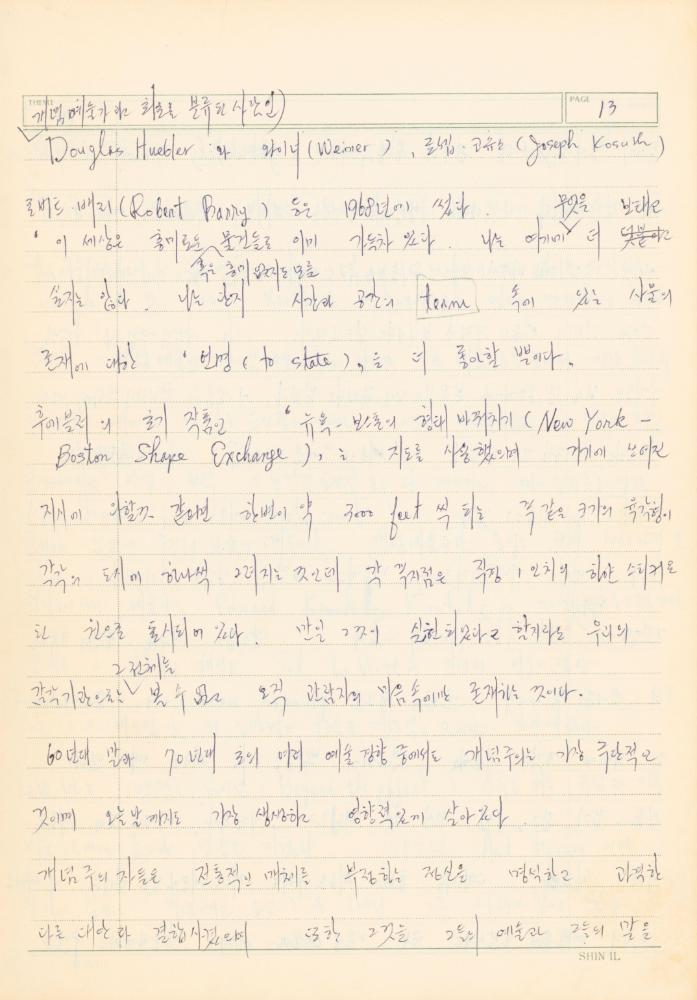 THEME
PAGE 13
개념예술가라고 최초로 분류된 사람인)
Douglas Huebler 와 와이너 (Weiner), 죠셉 코쥬스 (Joseph Kosuth)
로버트 배리 (Robert Barry) 등은 1968년에 썼다. 무엇을 보태고
'이 세상은 흥미로운 물건들로 이미 가득차 있다. 나는 여기에 더
혹은 흥미 없지도 모를
싶지는 않다. 나는 단지 시간과 공간의 term 속에 있는 사물의
존재에 대한 '언명 (to state)'을 더 좋아할 뿐이다.
후에블러의 초기 작품인 '뉴욕-보스톤의 형태 바꿔치기 (New York -
Boston Shape Exchange)'는 지도를 사용했으며 거기에 쓰여진
지시에 의할것 같으면 한변이 약 3000 feet 씩 되는 똑같은 크기의 육각형이
각각의 도시에 하나씩 그려지는 것인데 각 꼭지점은 직경 1인치의 하얀 스티커로
된 점으로 표시되어 있다. 만일 그것이 실현되었다고 할지라도 우리의
그 전체를
감각기관으로는 볼 수 없고 오직 관람자의 마음속에만 존재하는 것이다.
60년대 말과 70년대 초의 여러 예술경향 중에서도 개념주의는 가장 극단적인
것이며 오늘날까지도 가장 생생하고 영향력있게 살아있다.
개념주의자들은 전통적인 매체를 부정하는 자신을 명석하고 과격한
다른 대안과 결합시켰으며 또한 그것을 그들의 예술과 그들의 말을
SHIN IL